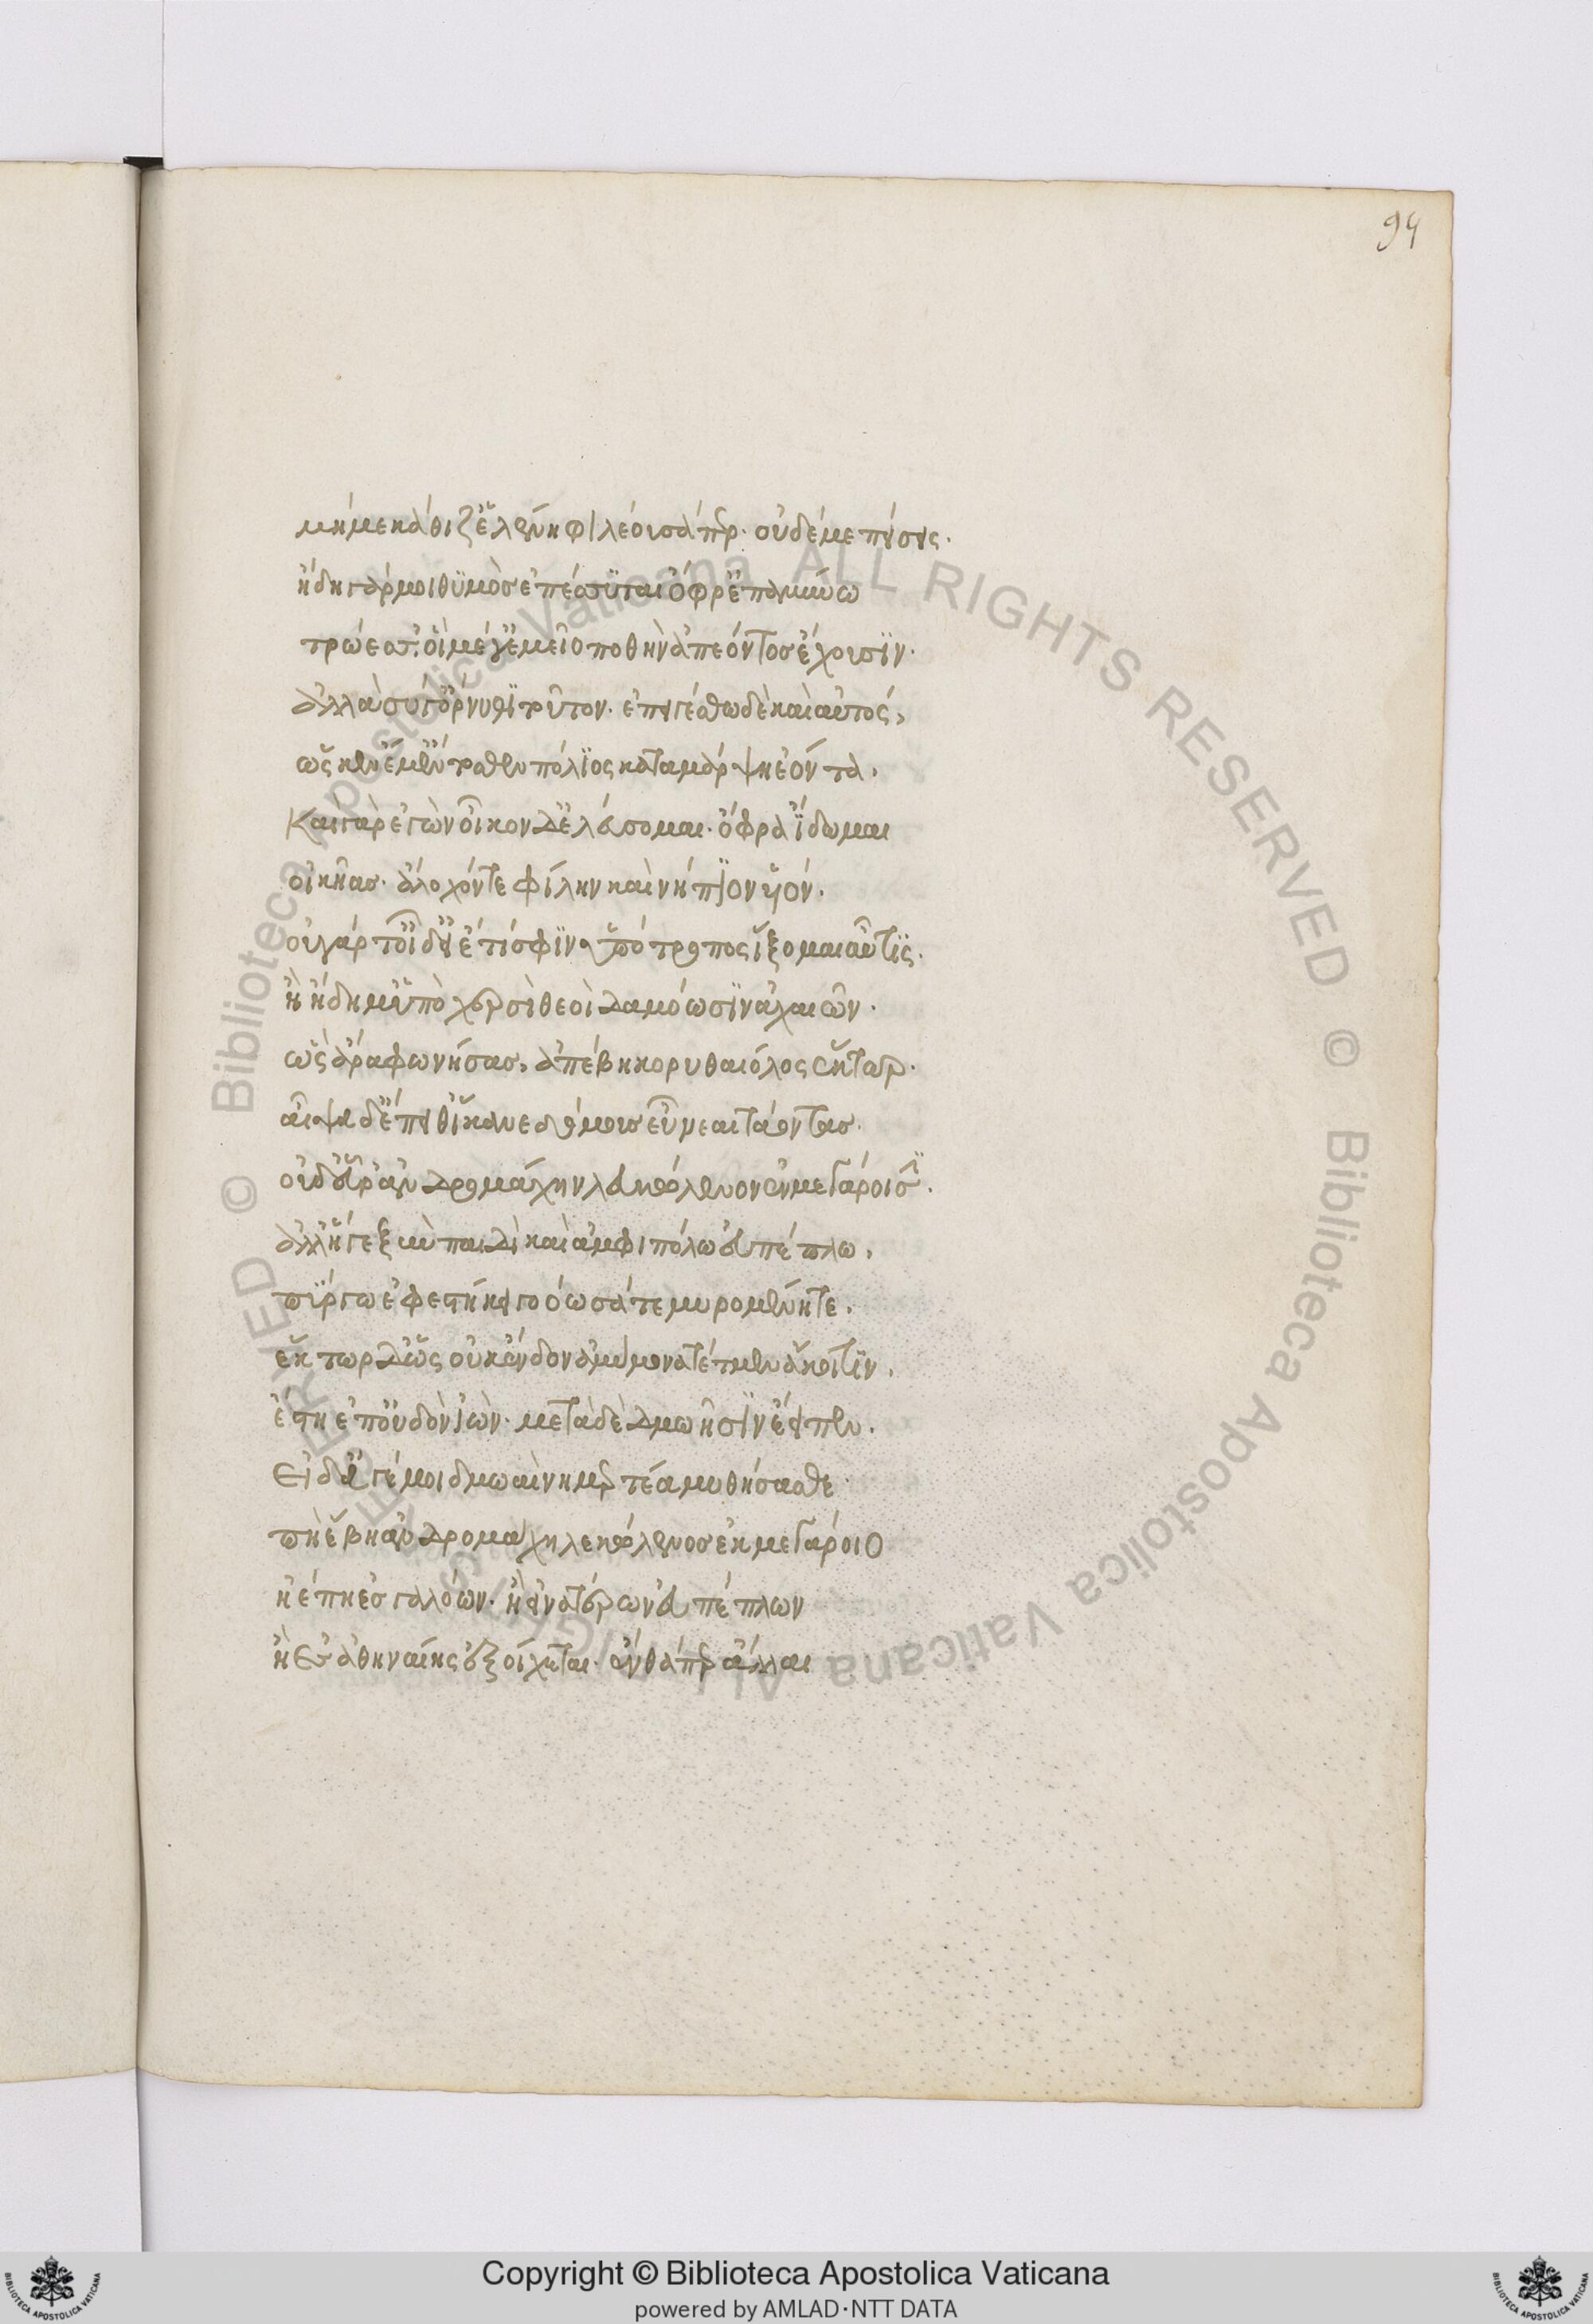 94
μή με κάθιζ' ἑλένη φιλέουσά περ. οὐδέ με πείσεις.
ἤδη γάρ μοι θϋμὸσ ἐπέσσϋται ὄφρ' ἐπαμύνω
τρώεσσ'. οἳ μέγ' ἐμεῖο ποθὴν ἀπεόντοσ ἔχουσϊν.
ἀλλὰ σύ γ' ὄρνυθϊ τοῦτον. ἐπειγέσθω δὲ καὶ αὐτός,
ὥς κεν ἔμ' ἔντοσθεν πόλϊος καταμάρψη ἐόντα.
Καὶ γὰρ ἐγὼν οἶκον δ' ἐλεύσομαι. ὄφρα ἴδωμαι
οἰκῆασ. ἄλοχόν τε φίλην καὶ νήπϊον υἱόν.
οὐ γάρ τ' οἶδ' εἰ ἔτι σφϊν ὑπότροπος ἵξομαι αὖτϊς.
ἢ ἤδη μ' ὑπὸ χερσὶ θεοὶ δαμόωσϊν ἀχαιῶν.
ὣς ἄρα φωνήσασ, ἀπέβη κορυθαιόλος ἕκτωρ.
αἶψα δ' ἔπειθ' ἵκανε δόμουσ εὖ ναιετάοντασ.
οὐδ' εὗρ' ἀνδρομάχην λευκώλενον ἐν μεγάροισϊ.
ἀλλ' ἥ γε ξὺν παιδὶ καὶ ἀμφιπόλω εὐπέπλω,
πϋργω ἐφεστήκει γοόωσά τε μυρομένη τε.
ἕκτωρ δ' ὡς οὐκ ἔνδον ἀμύμονα τέτμεν ἄκοιτϊν,
ἔστη ἐπ' οὐδὸν ἰών. μετὰ δὲ δμωῆσϊν ἔειπεν.
Εἰ δ' ἄγέ μοι δμωαὶ νημερτέα μυθήσασθε
πῆ ἔβη ἀνδρομάχη λευκώλενοσ ἐκ μεγάροιο
ἠέ πη ἐσ γαλόων. ἢ εἰνατέρων εὐπέπλων
ἢ ἐσ ἀθηναίης ἐξοίχεται. ἔνθά περ ἄλλαι
Copyright © Biblioteca Apostolica Vaticana
powered by AMLAD·NTT DATA